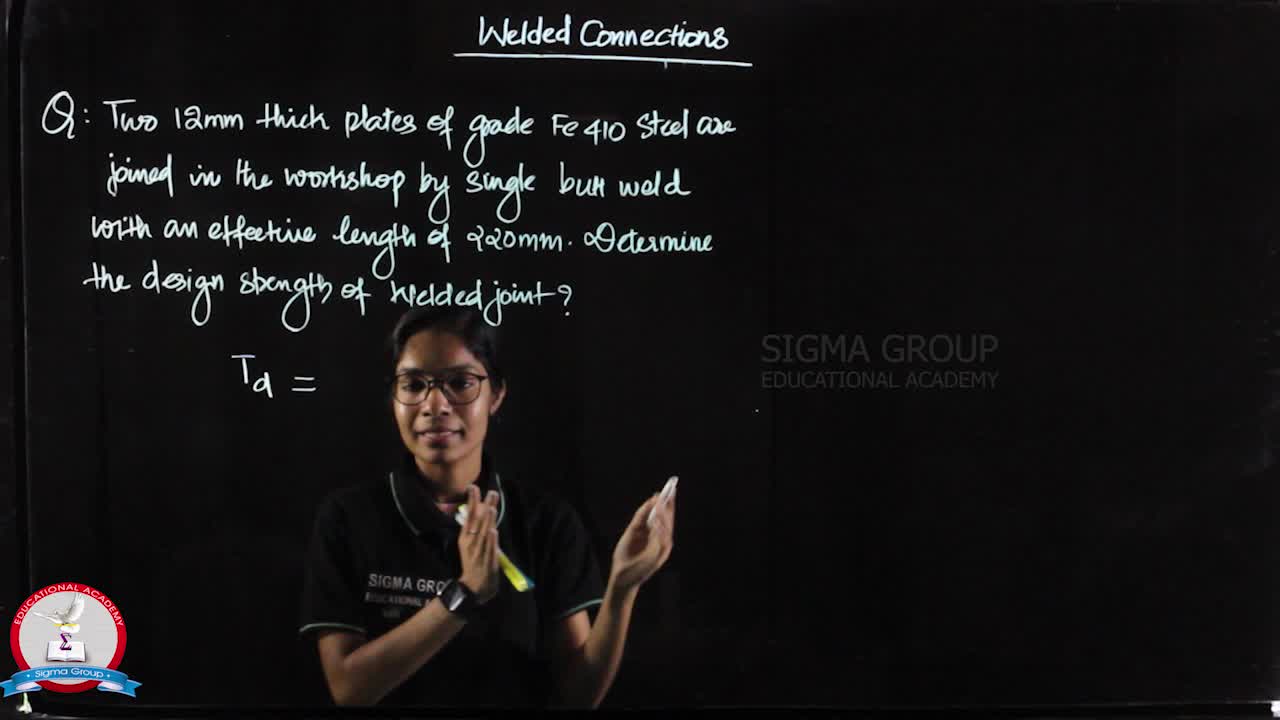 Welded Connections
Q: Two 12mm thick plates of grade Fe 410 Steel are
joined in the workshop by single butt weld
with an effective length of 220mm. Determine
the design strength of Welded joint?
Td =
SIGMA GROUP
EDUCATIONAL ACADEMY
SIGMA GRO
EDUCATIONAL A
EDUCATIONAL ACADEMY
Σ
Sigma Group